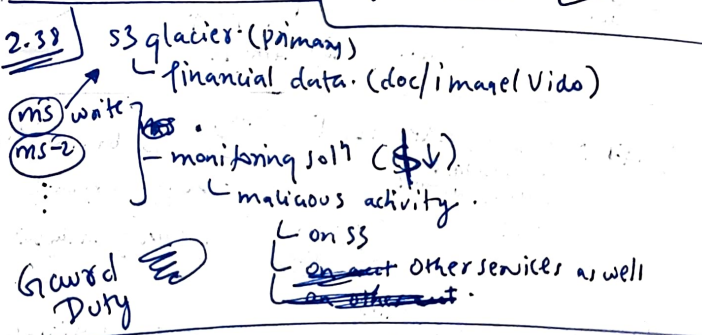 2.38 S3 glacier (primary)
financial data. (doc/image/Vido)
ms write
ms-2
monitoring solⁿ ($↓)
malicaous activity.
on S3
Other services as well
Gaurd
Duty